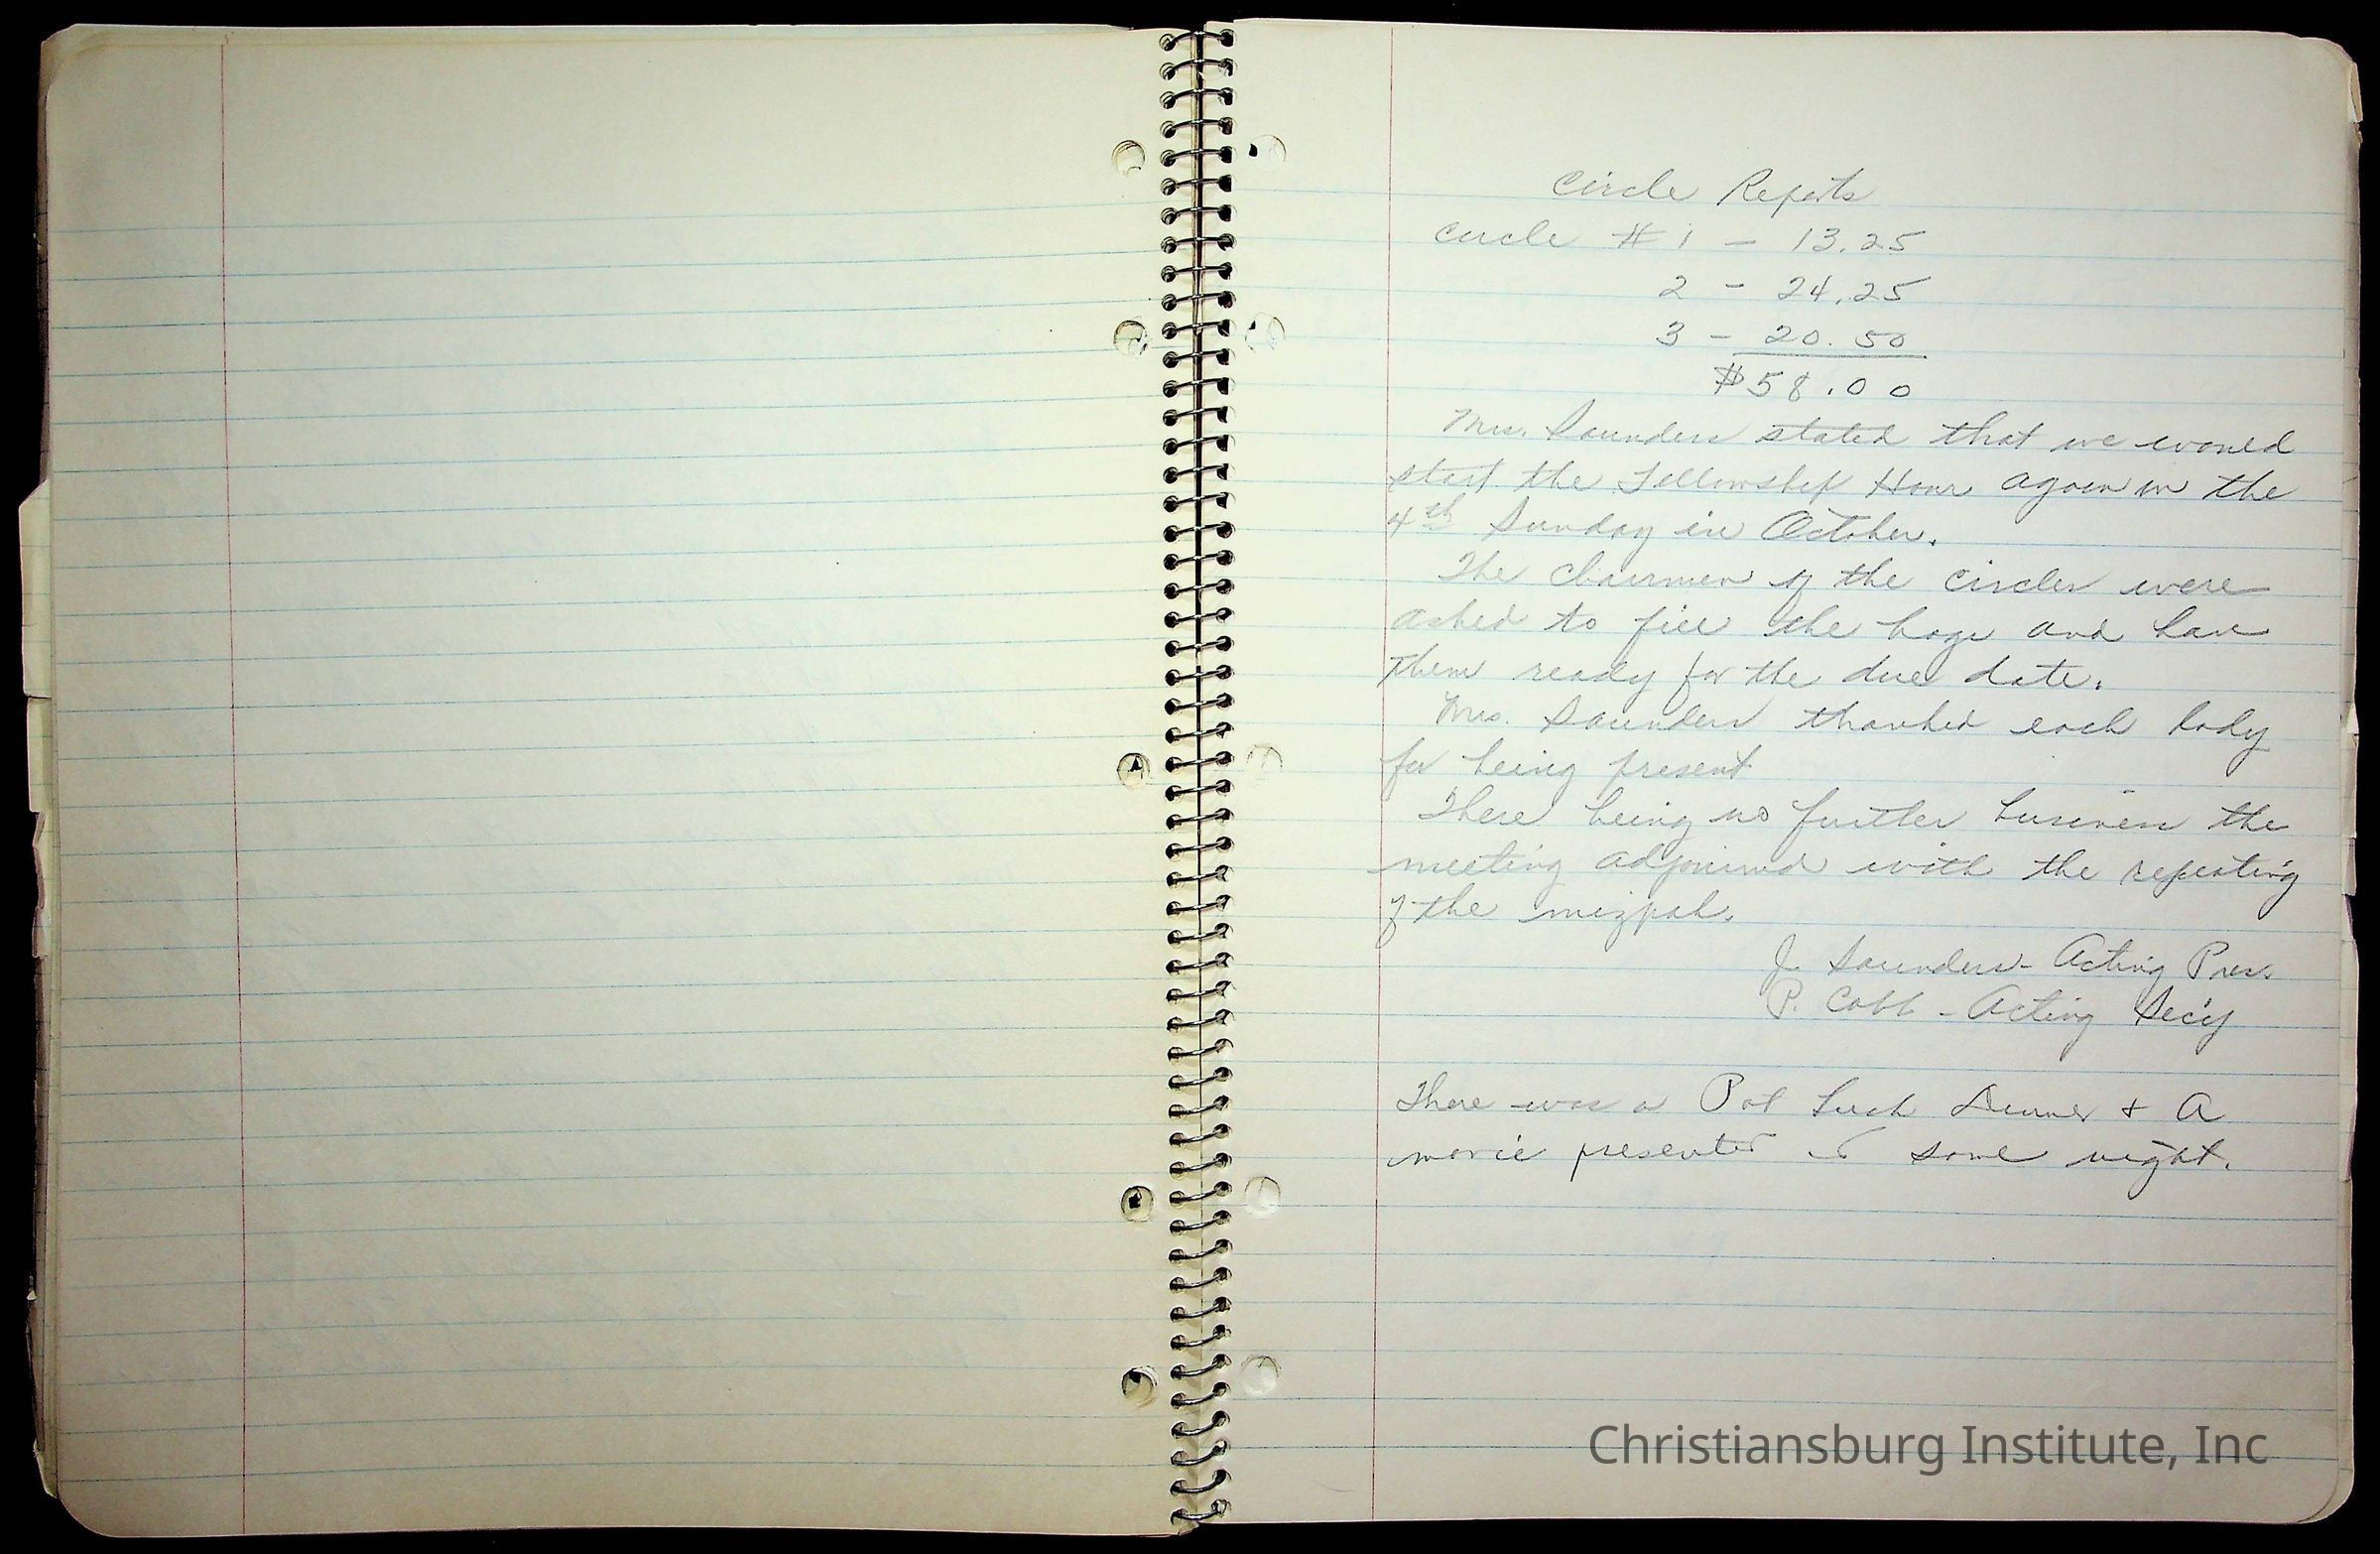 Circle Reports
Circle # 1 - 13.25
2 - 24.25
3 - 20.50
$58.00
Mrs. Saunders stated that we would
start the Fellowship Hour again in the
4th Sunday in October.
The chairmen of the circles were
asked to fill the bags and have
them ready for the due date.
Mrs. Saunders thanked each lady
for being present
There being no further business the
meeting adjourned with the repeating
of the mizpah.
J. Saunders - Acting Pres.
P. Cobb - Acting Sec'y
There was a Pot Luck Dinner & A
movie presented same night.
Christiansburg Institute, Inc